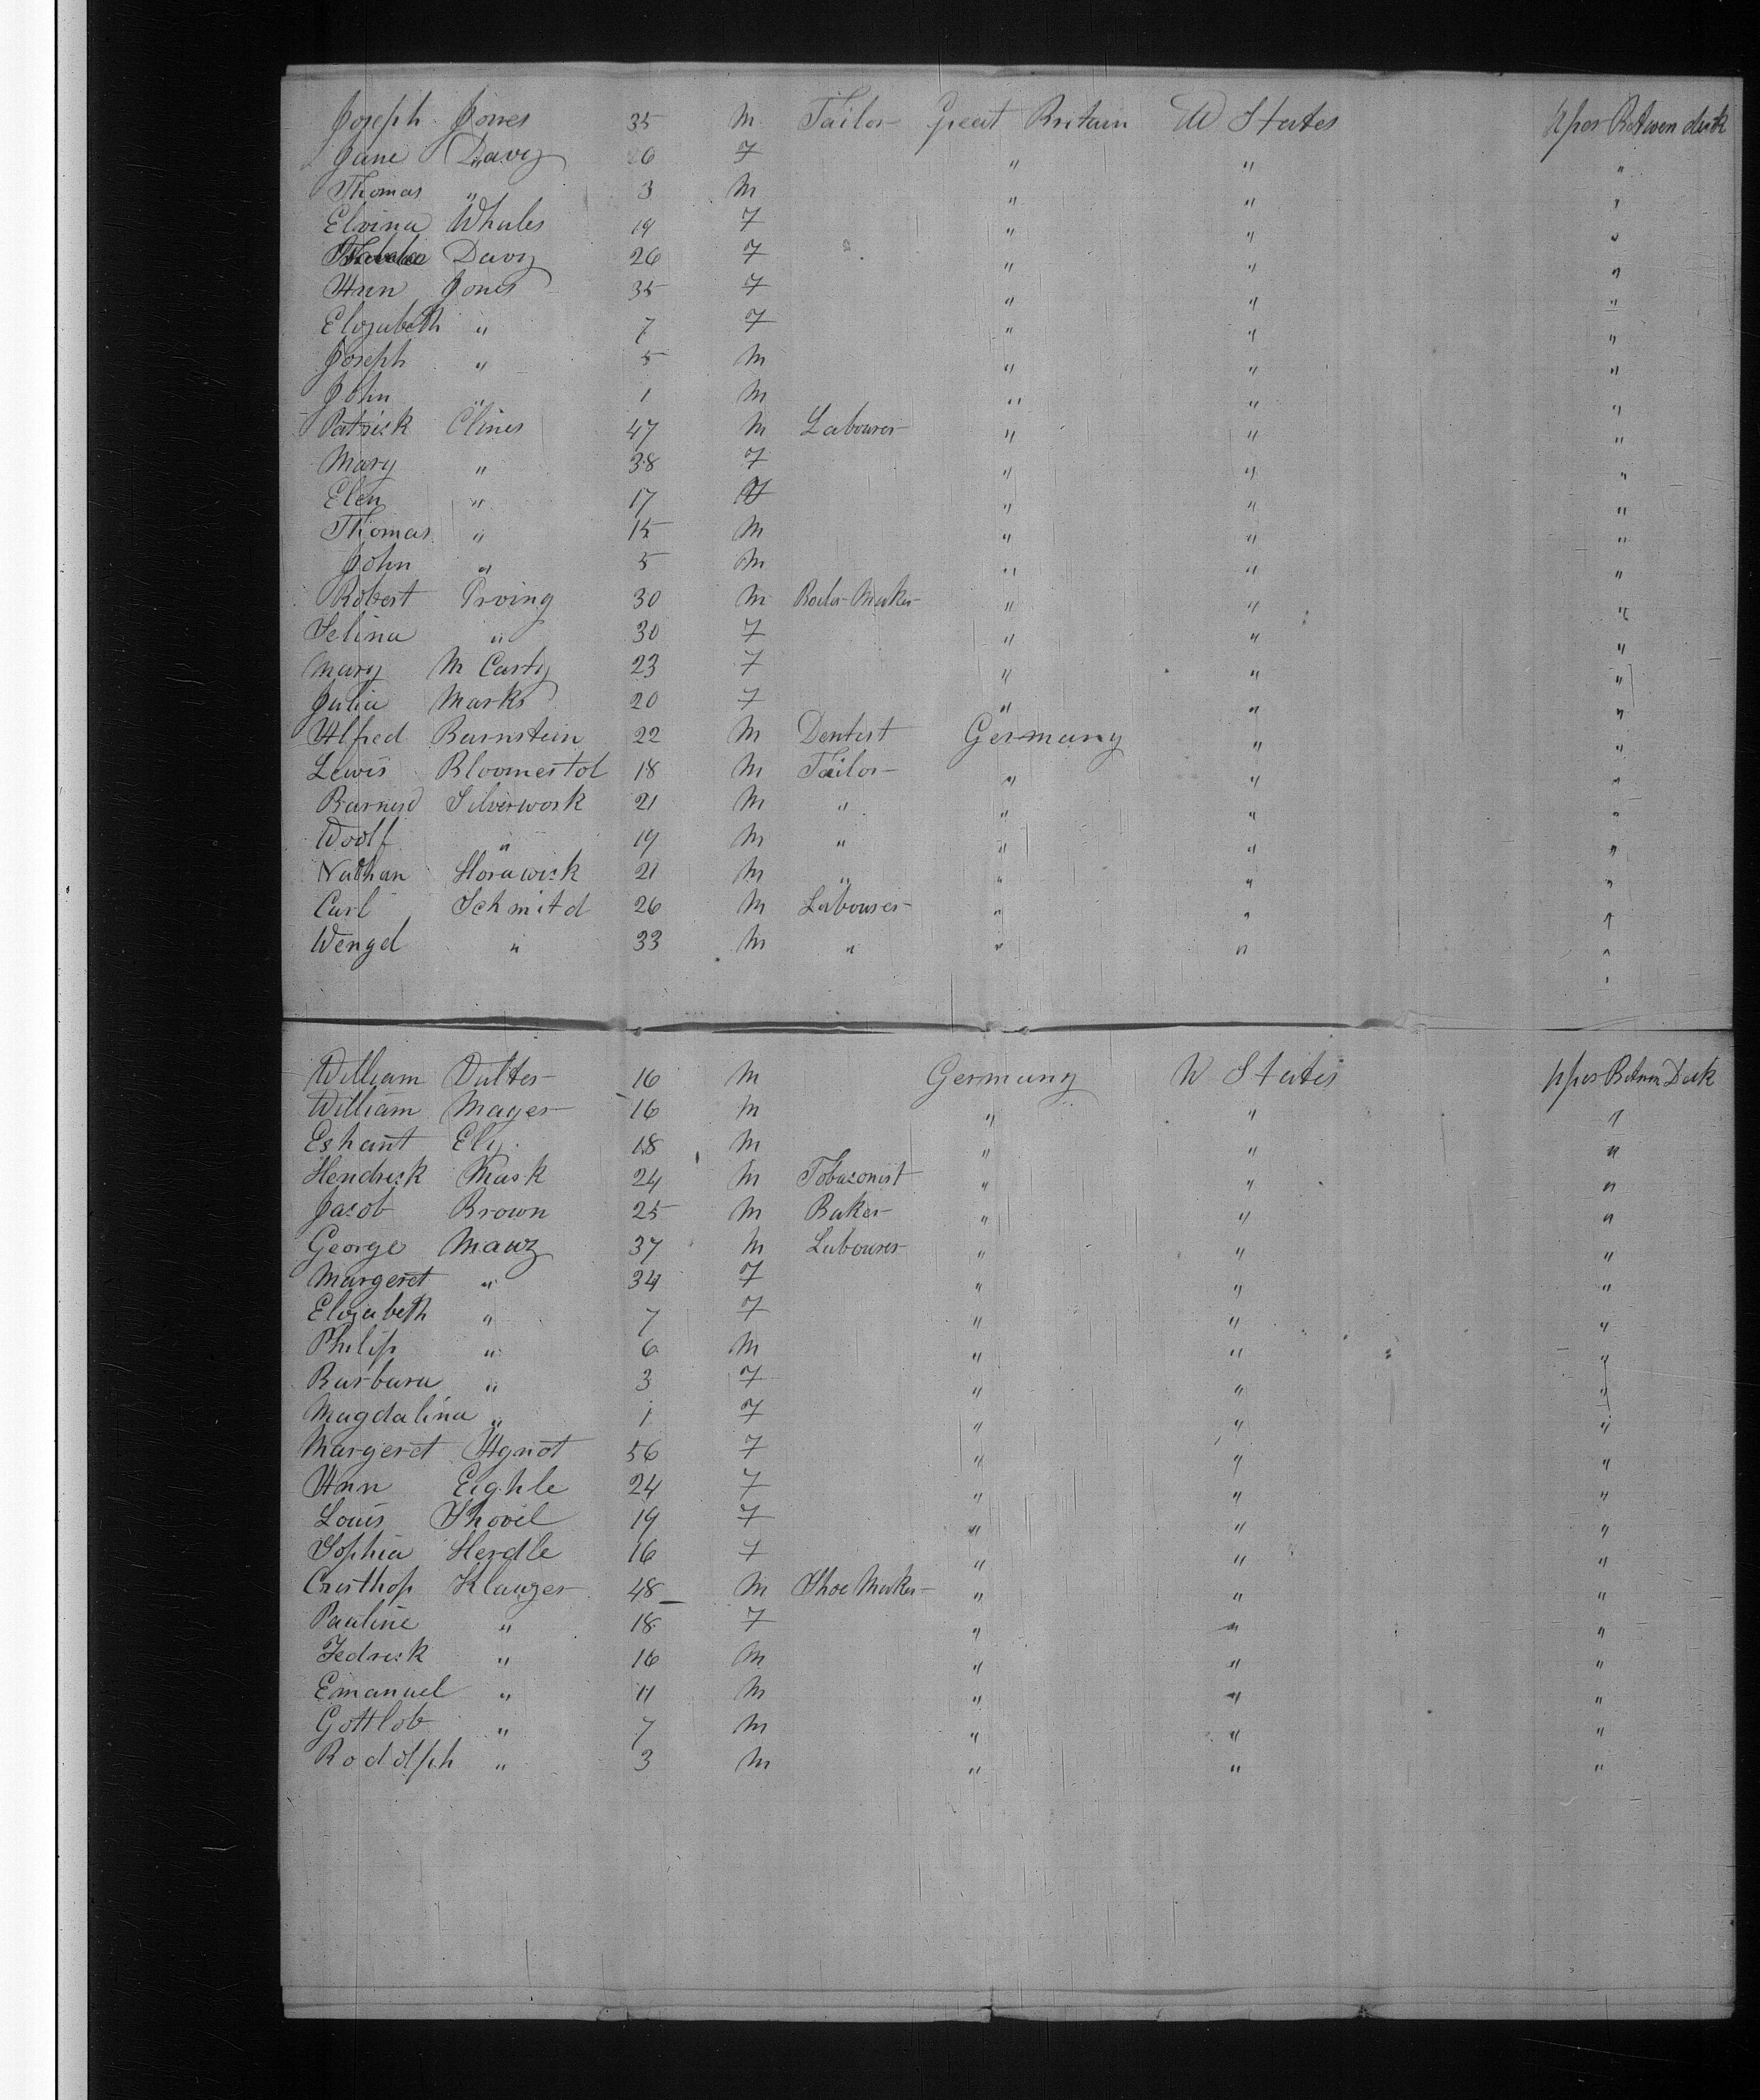 Joseph Jones 35 M Tailor Great Britain U States Upper Between deck
Jane Davy 26 F " " "
Thomas " 3 M " " "
Elvina Whales 19 F " " "
Davy 26 F " " "
Ann Jones 35 F " " "
Elizabeth " 7 F " " "
Joseph " 5 M " " "
John " 1 M " " "
Patrick Clines 47 M Labourer " " "
Mary " 38 F " " "
Elen " 17 F " " "
Thomas " 15 M " " "
John " 5 M " " "
Robert Irving 30 M Boiler Maker " " "
Selina " 30 F " " "
Mary M Carty 23 F " " "
Julia Marks 20 F " " "
Alfred Barnstein 22 M Dentist Germany " "
Lewis Bloomestol 18 M Tailor " " "
Barned Silverwork 21 M " " " "
Woolf " 19 M " " " "
Nathan Horawick 21 M " " " "
Carl Schmitd 26 M Labourer " " "
Wengd " 33 M " " " "
"
William Dulter 16 M Germany U States Upper Betwen Deck
William Mager 16 M " " "
Eshant Ely 18 M " " "
Hendrick Mask 24 M Tobaconist " " "
Jacob Brown 25 M Baker " " "
George Mauz 37 M Labourer " " "
Margeret " 34 F " " "
Elizabeth " 7 F " " "
Philip " 6 M " " "
Barbara " 3 F " " "
Magdalina " 1 F " " "
Margeret Agnot 56 F " " "
Ann Eighle 24 F " " "
Louis Shovel 19 F " " "
Sophia Herdle 16 F " " "
Cristhop Klauger 48 M Shoe Maker " " "
Pauline " 18 F " " "
Fedrick " 16 M " " "
Emanuel " 11 M " " "
Gottlob " 7 M " " "
Rodolph " 3 M " " "